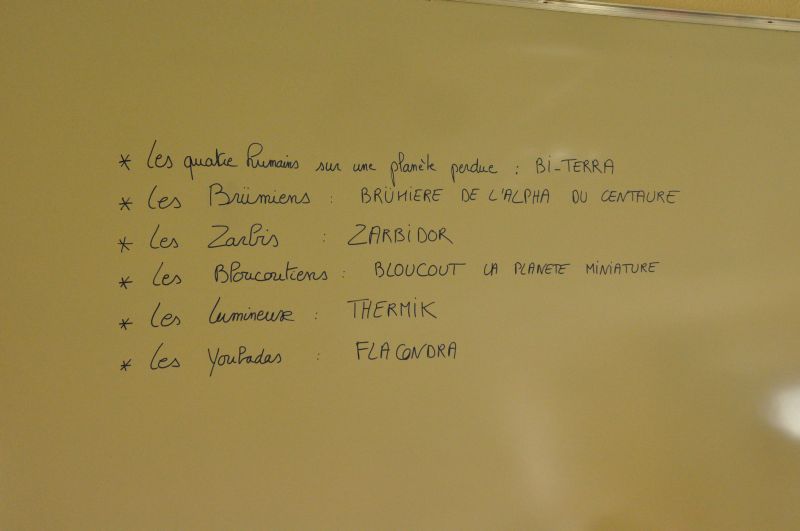 * Les quatre humains sur une planète perdue : BI-TERRA
* Les Brümiens : BRÜMIERE DE L'ALPHA DU CENTAURE
* Les Zarbis : ZARBIDOR
* Les Bloucoutiens : BLOUCOUT LA PLANETE MINIATURE
* Les Lumineux : THERMIK
* Les Youpadas : FLACONDRA